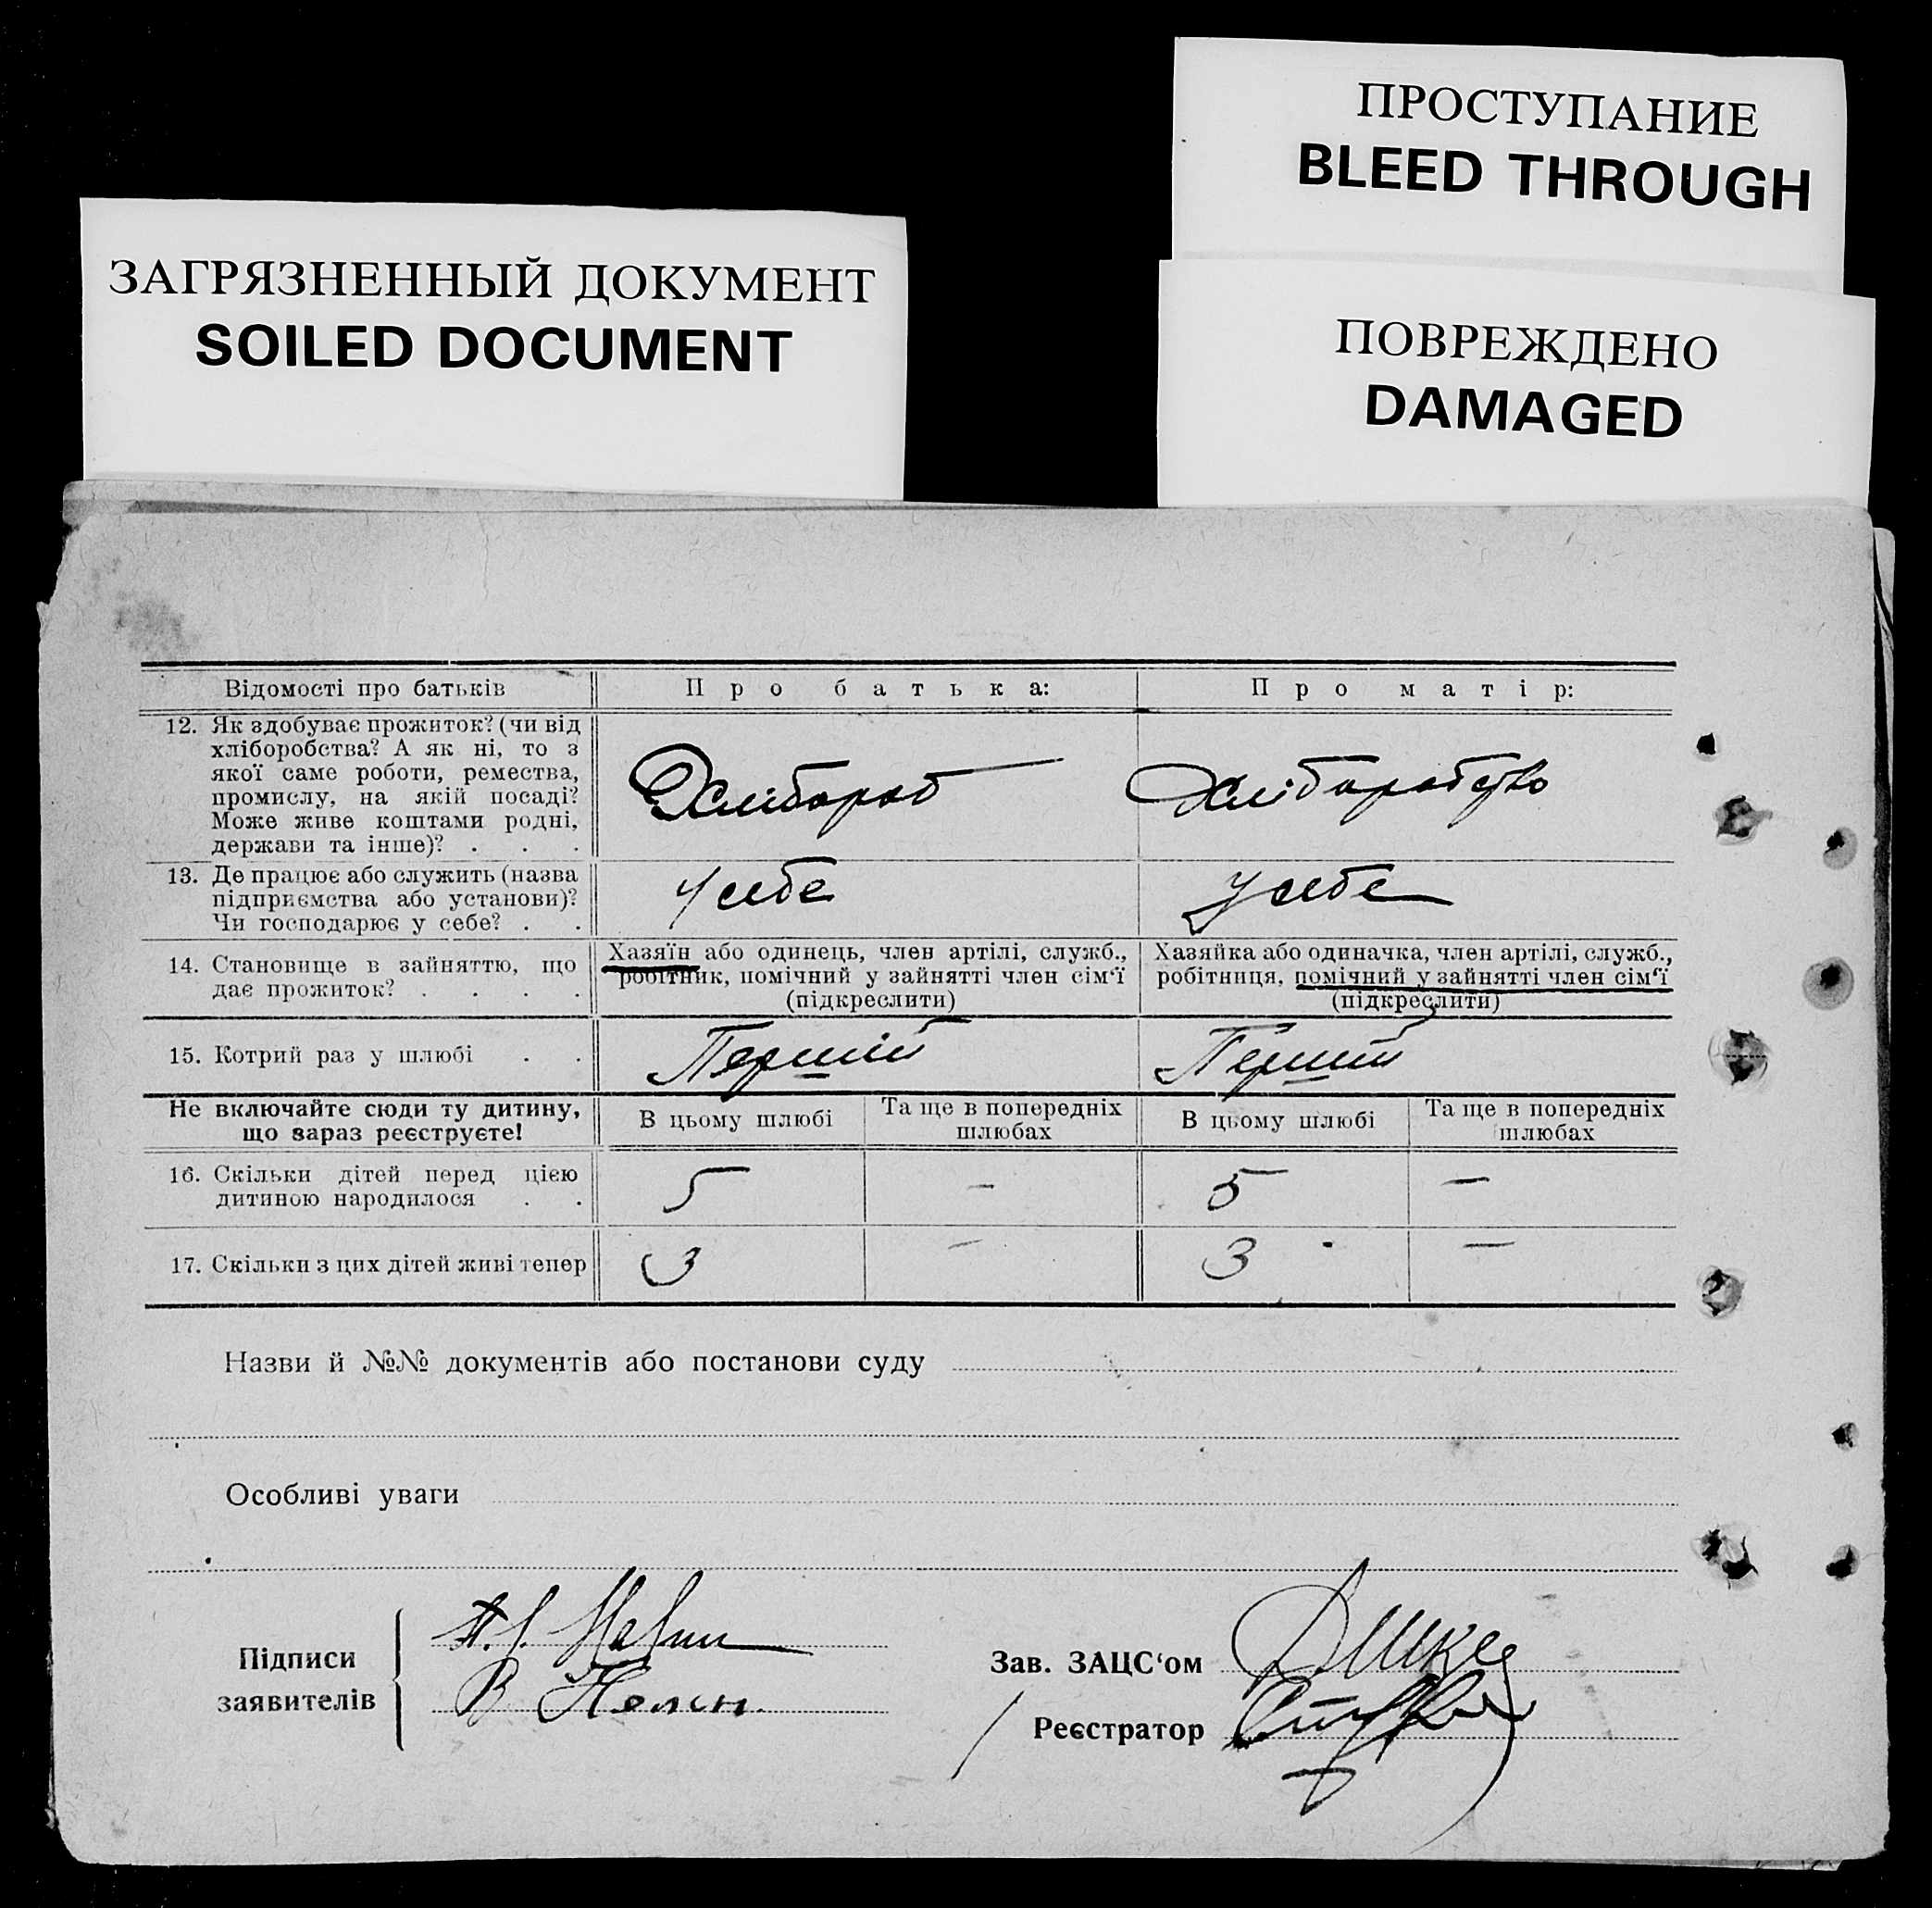 ПРОСТУПАНИЕ
BLEED THROUGH
ЗАГРЯЗНЕННЫЙ ДОКУМЕНТ
SOILED DOCUMENT
ПОВРЕЖДЕНО
DAMAGED
Відомості про батьків
Про батька:
Про матір:
12. Як здобуває прожиток? (чи від
хліборобства? А як ні, то з
якої саме роботи, ремества,
промислу, на якій посаді?
Може живе коштами родні,
держави та інше)? . . .
Хлібороб
Хліборобство
13. Де працює або служить (назва
підприємства або установи)?
Чи господарює у себе? . .
У себе
У себе
14. Становище в зайняттю, що
дає прожиток? . . . .
Хазяїн або одинець, член артілі, служб.,
робітник, помічний у зайнятті член сім'ї
(підкреслити)
Хазяйка або одиначка, член артілі, служб.,
робітниця, помічний у зайнятті член сім'ї
(підкреслити)
15. Котрий раз у шлюбі . .
Перший
Перший
Не включайте сюди ту дитину,
що зараз реєструєте!
В цьому шлюбі
Та ще в попередніх
шлюбах
В цьому шлюбі
Та ще в попередніх
шлюбах
16. Скільки дітей перед цією
дитиною народилося . .
5 — 5 —
17. Скільки з цих дітей живі тепер
3 — 3 —
Назви й №№ документів або постанови суду
Особливі уваги
Підписи
заявителів
В
Зав. ЗАЦС'ом
Реєстратор